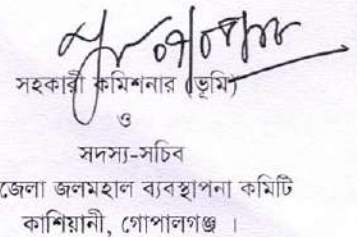 সহকারী কমিশনার (ভূমি)
ও
সদস্য-সচিব
জেলা জলমহাল ব্যবস্থাপনা কমিটি
কাশিয়ানী, গোপালগঞ্জ ।